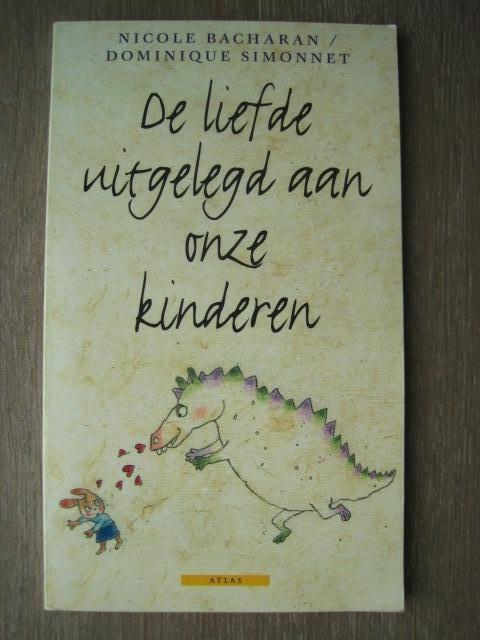 NICOLE BACHARAN /
DOMINIQUE SIMONNET
De liefde
uitgelegd aan
onze
kinderen
ATLAS